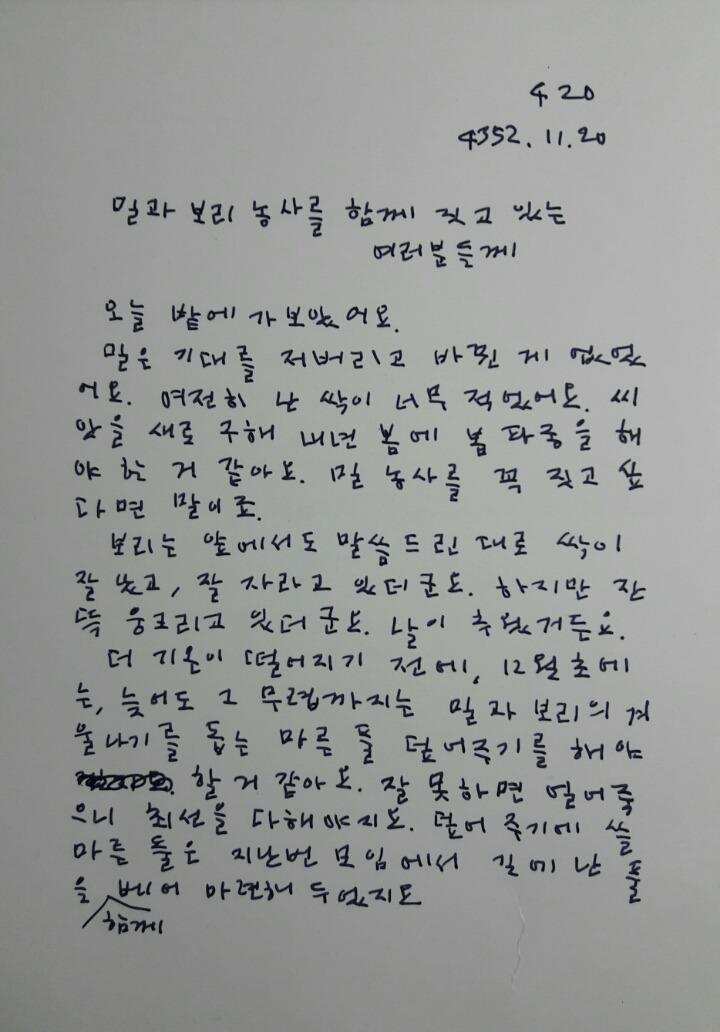 420
4352.11.20
밀과 보리 농사를 함께 짓고 있는
여러분들께
오늘 밭에 가 보았어요.
밀은 기대를 저버리고 바뀐 게 없었
어요. 여전히 난 싹이 너무 적었어요. 씨
앗을 새로 구해 내년 봄에 봄 파종을 해
야 할 거 같아요. 밀 농사를 꼭 짓고 싶
다면 말이죠.
보리는 앞에서도 말씀드린 대로 싹이
잘 났고, 잘 자라고 있더군요. 하지만 잔
뜩 웅크리고 있더군요. 날이 추웠거든요.
더 기온이 떨어지기 전에, 12월 초에
는, 늦어도 그 무렵까지는 밀과 보리의 겨
울나기를 돕는 마른 풀 덮어주기를 해야
할 거 같아요. 잘 못하면 얼어죽
으니 최선을 다해야지요. 덮어 주기에 쓸
마른 풀은 지난번 모임에서 길에 난 풀
을 베어 마련해 두었지요
함께